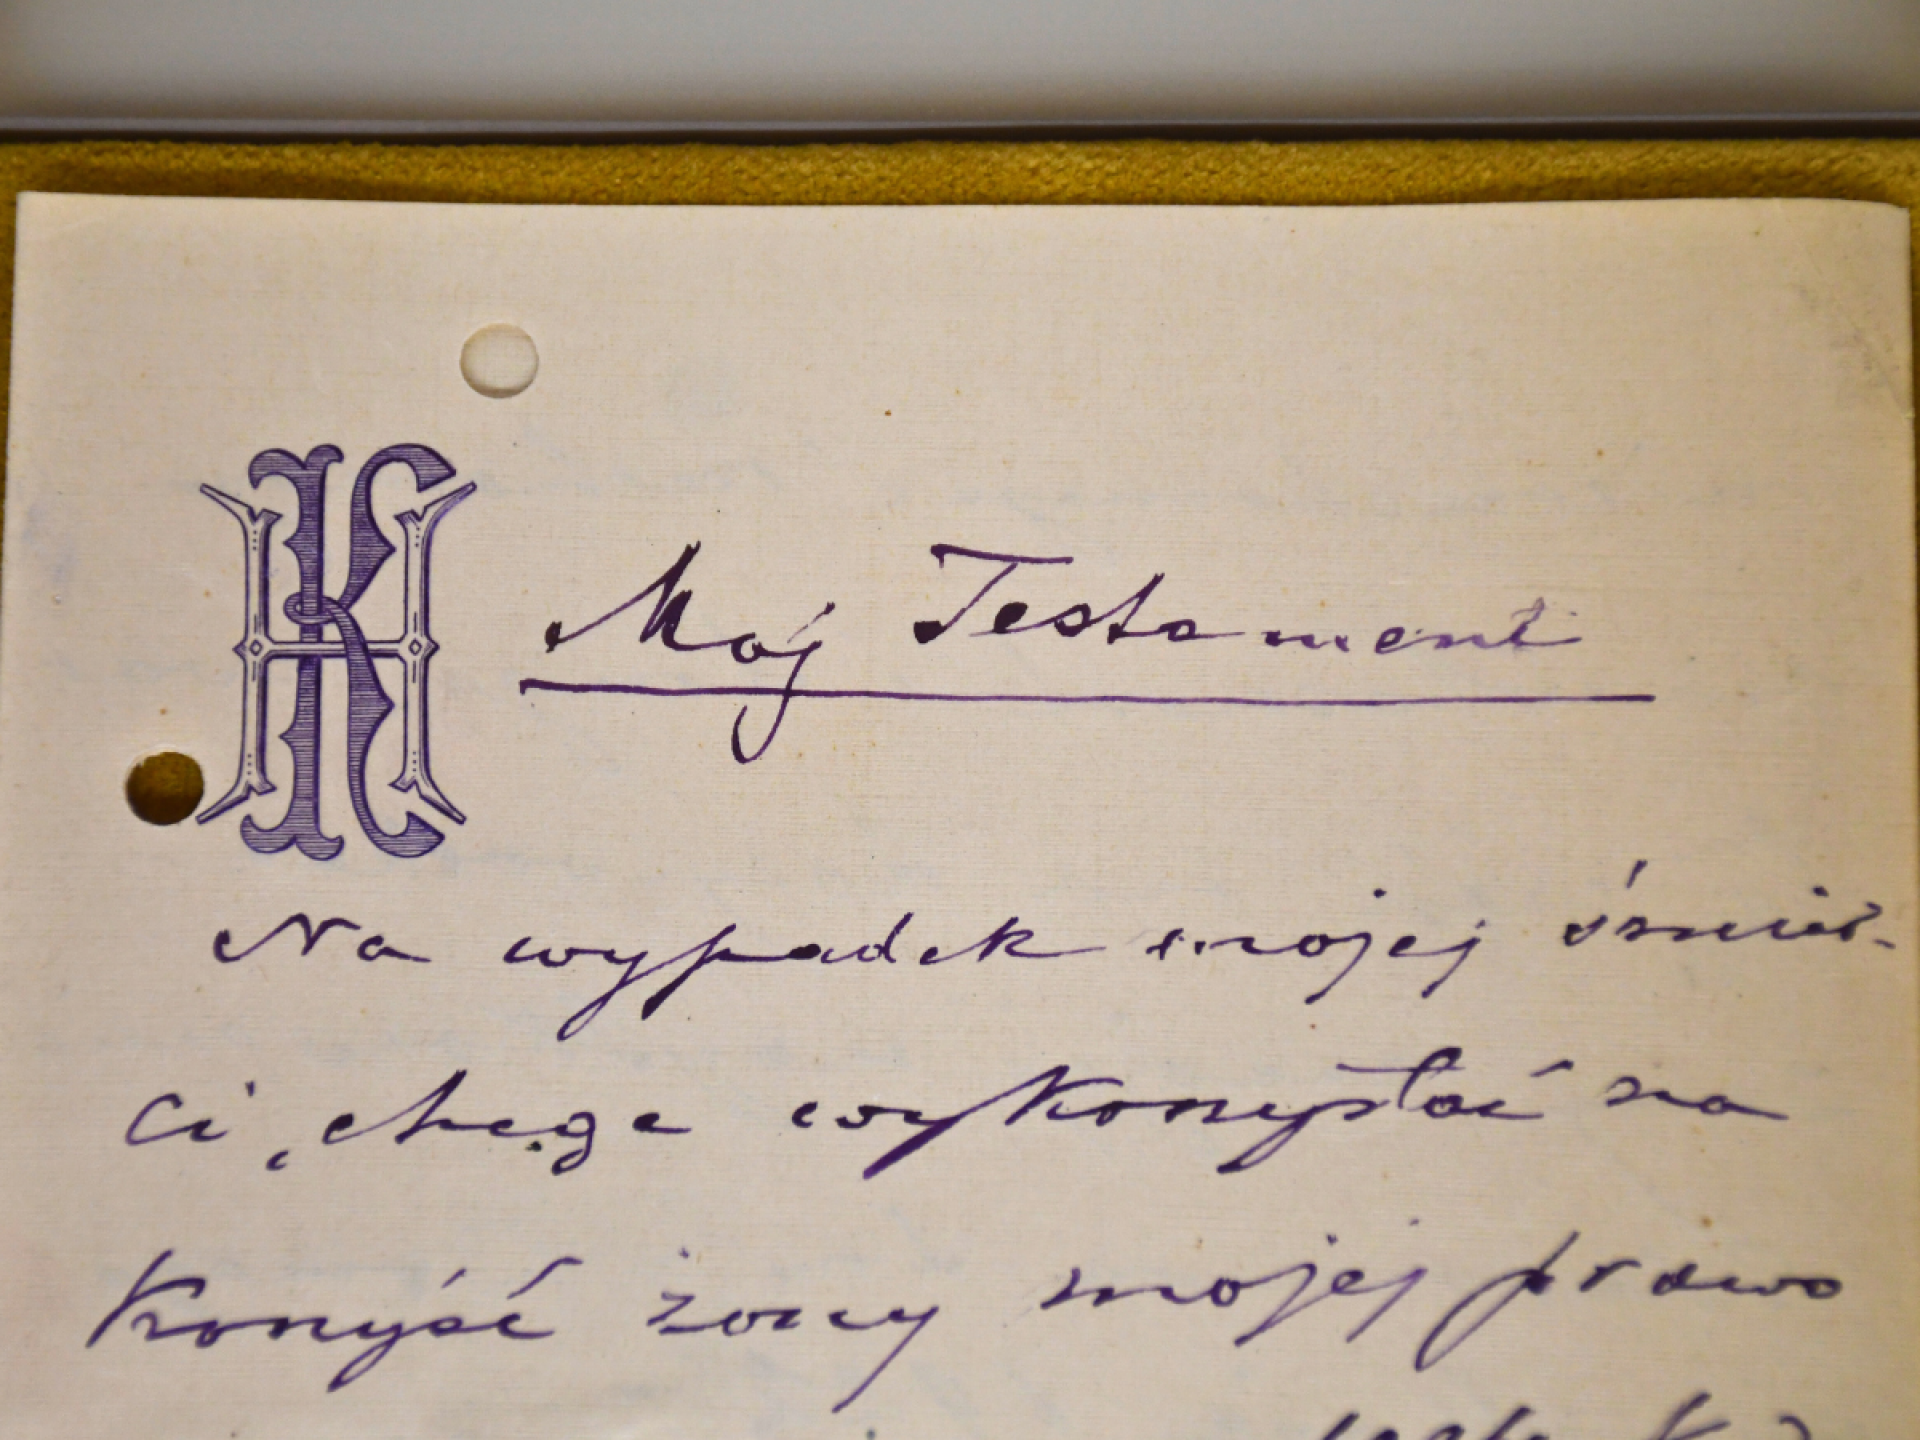 HK
Mój Testament
Na wypadek mojej śmier-
ci, chcąc wykorzystać na
korzyść żony mojej prawo